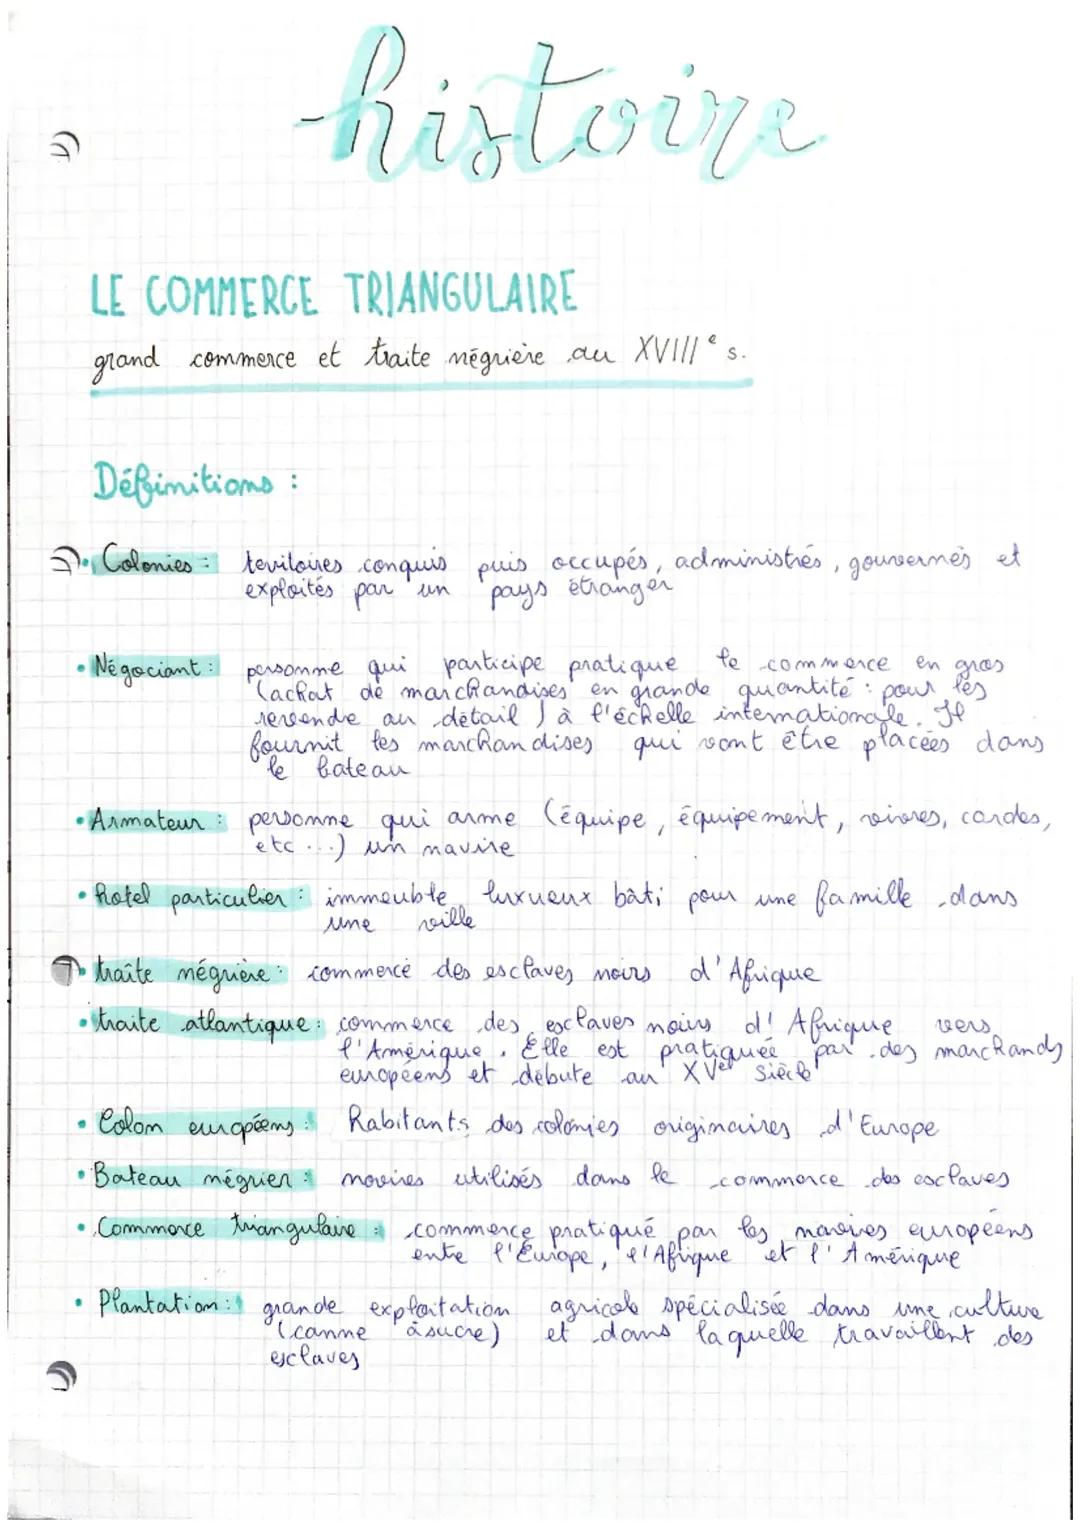 histoire
LE COMMERCE TRIANGULAIRE
grand commerce et traite négrière au XVIIIe s.
Définitions :
• Colonies : territoires conquis puis occupés, administrés, gouvernés et
exploités par un pays étranger
• Négociant : personne qui participe pratique le commerce en gros
(achat de marchandises en grande quantité : pour les
revendre au détail) à l'échelle internationale. Il
fournit les marchandises qui vont être placées dans
le bateau
• Armateur : personne qui arme (équipe, équipement, vivres, cordes,
etc ...) un navire
• hotel particulier : immeuble luxueux bâti pour une famille dans
une ville
• traite négrière : commerce des esclaves noirs d'Afrique
• traite atlantique : commerce des esclaves noirs d'Afrique vers
l'Amérique. Elle est pratiquée par des marchands
européens et débute au XVe siècle
• Colon européens : Habitants des colonies originaires d'Europe
• Bateau négrier : navires utilisés dans le commerce des esclaves
• Commerce triangulaire : commerce pratiqué par les navires européens
entre l'Europe, l'Afrique et l'Amérique
• Plantation : grande exploitation agricole spécialisée dans une culture
(canne à sucre) et dans laquelle travaillent des
esclaves